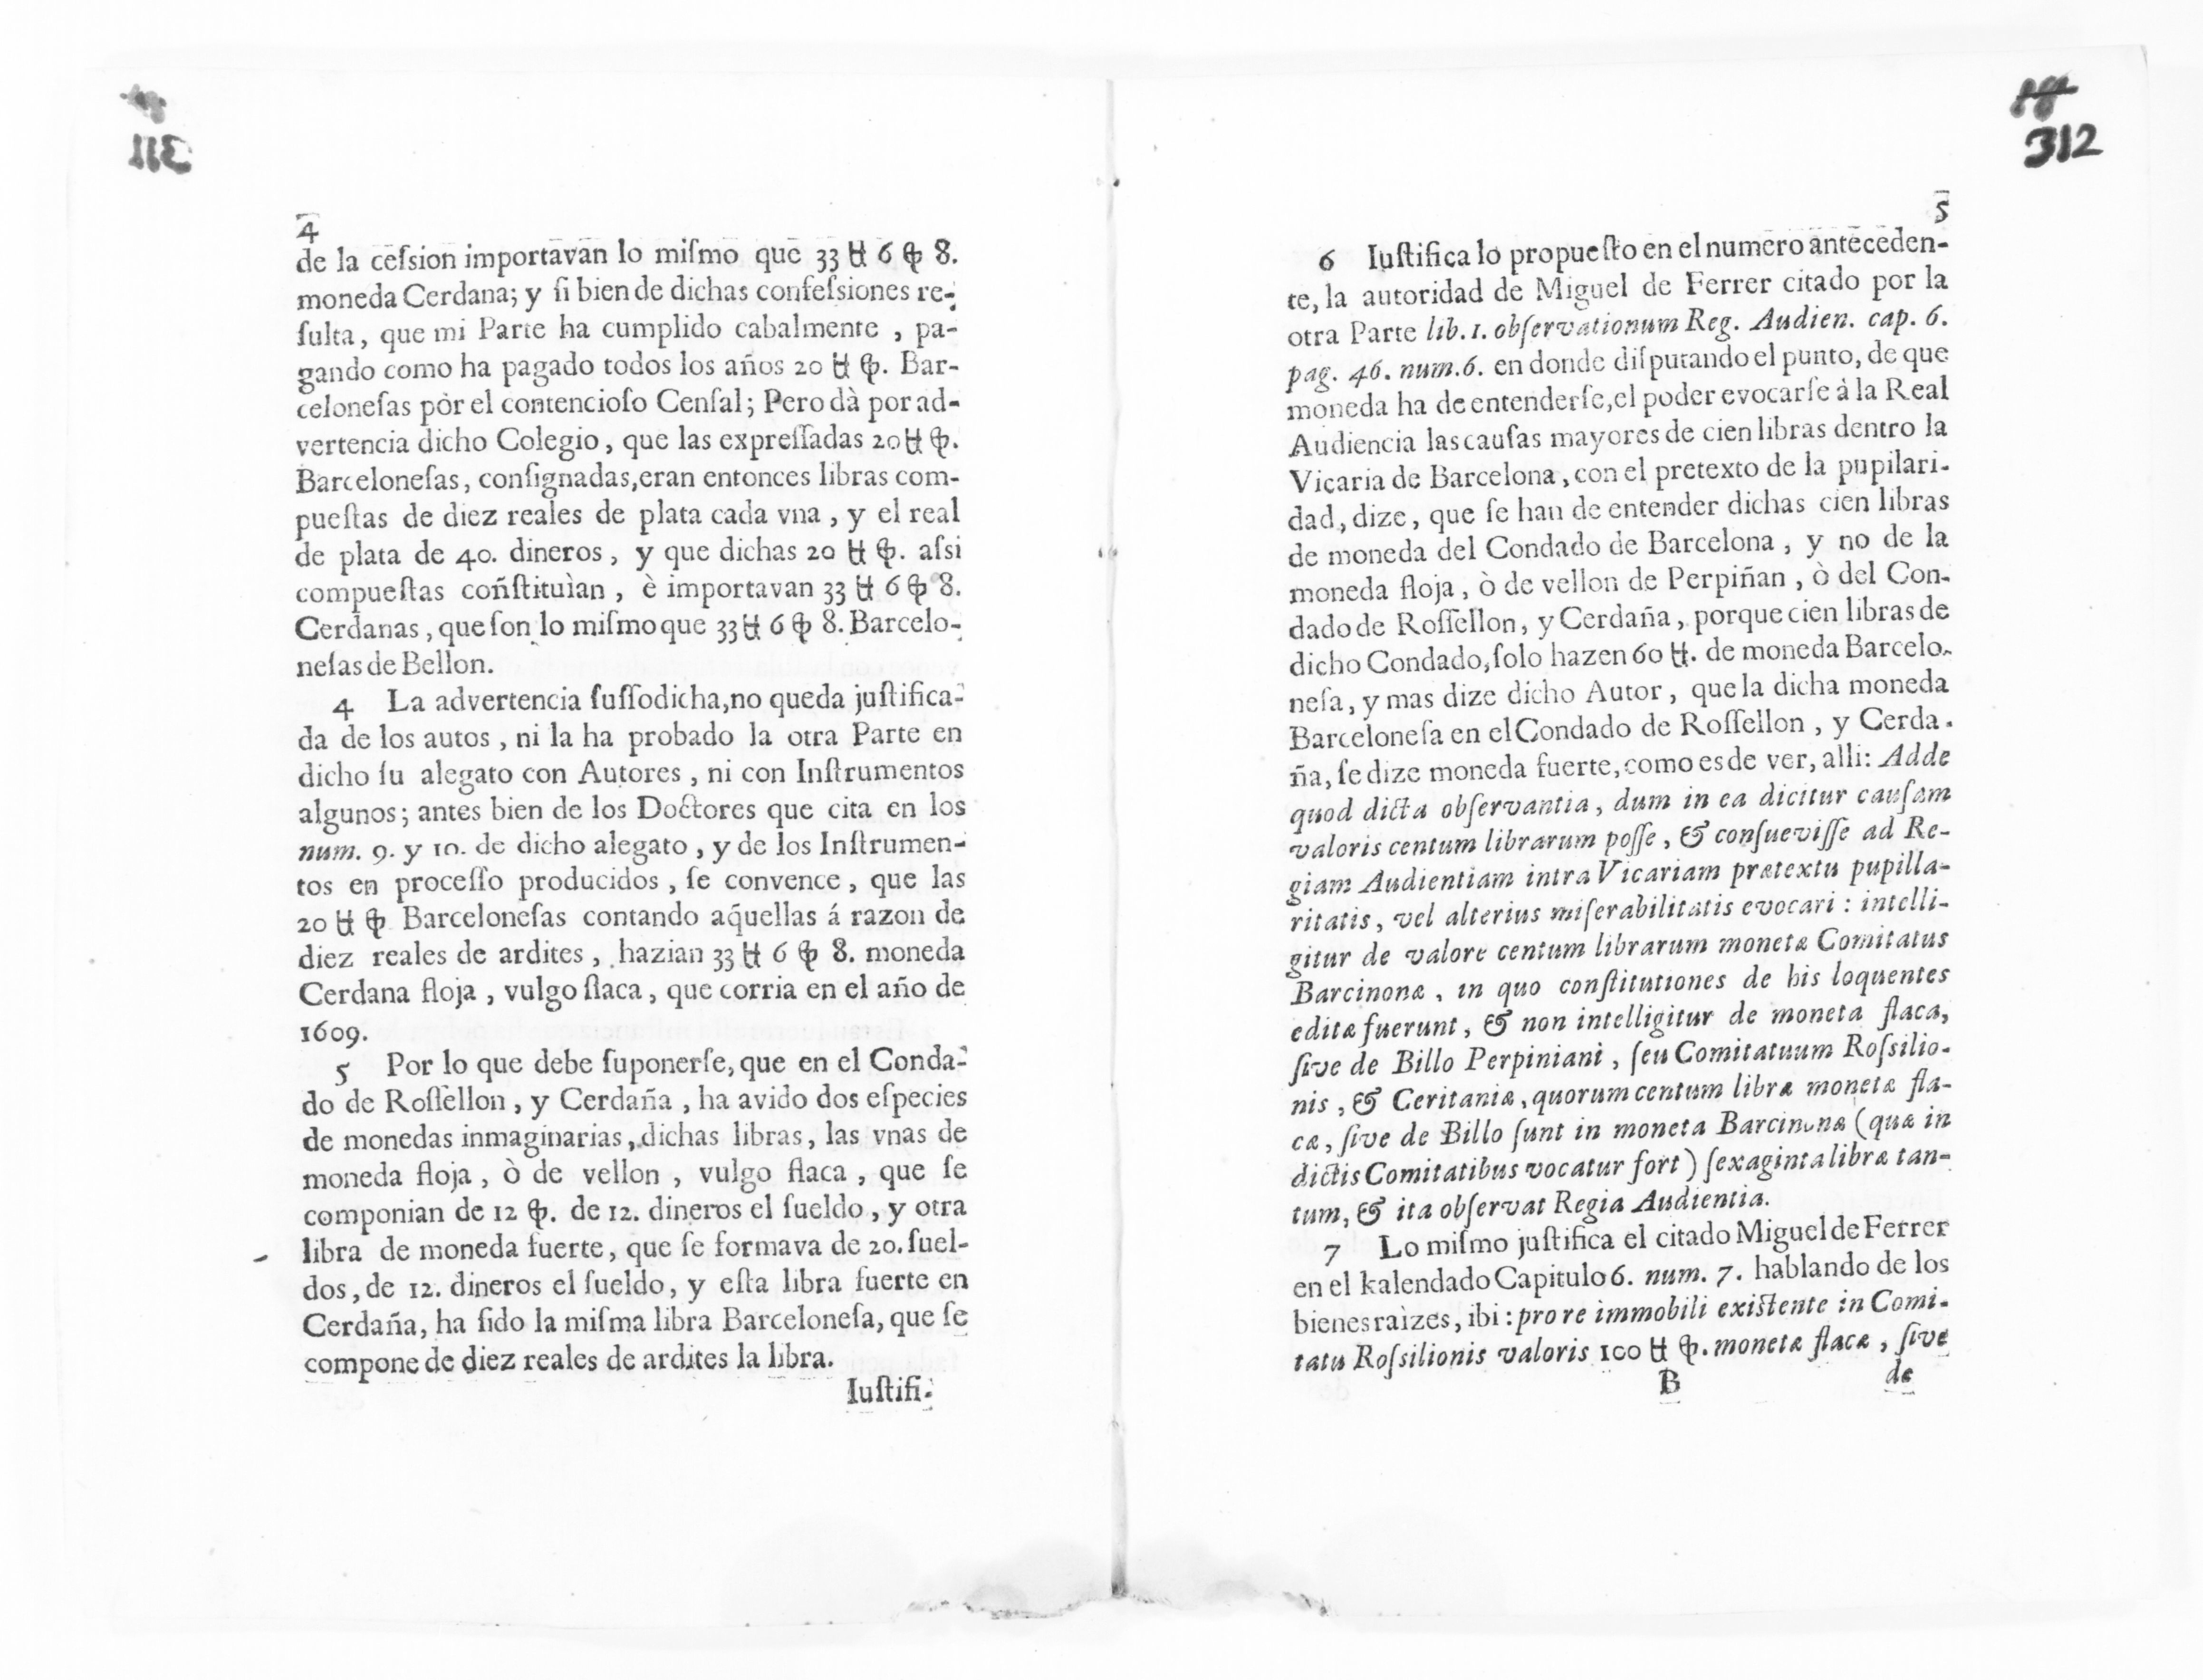 4
de la cefsion importavan lo miſmo que 33 ℔ 6 ꝕ 8.
moneda Cerdana; y ſi bien de dichas confeſsiones re-
ſulta, que mi Parte ha cumplido cabalmente , pa-
gando como ha pagado todos los años 20 ℔ ꝕ. Bar-
celoneſas pòr el contencioſo Cenſal; Pero dà por ad-
vertencia dicho Colegio, que las expreſſadas 20 ℔ ꝕ.
Barceloneſas, conſignadas,eran entonces libras com-
pueſtas de diez reales de plata cada vna , y el real
de plata de 40. dineros, y que dichas 20 ℔ ꝕ. aſsi
compueſtas coñſtituìan , è importavan 33 ℔ 6 ꝕ 8.
Cerdanas, que ſon lo miſmo que 33 ℔ 6 ꝕ 8. Barcelo-
neſas de Bellon.
4 La advertencia ſuſſodicha,no queda juſtifica-
da de los autos , ni la ha probado la otra Parte en
dicho ſu alegato con Autores , ni con Inſtrumentos
algunos; antes bien de los Doctores que cita en los
num. 9. y 10. de dicho alegato , y de los Inſtrumen-
tos en proceſſo producidos , ſe convence , que las
20 ℔ ꝕ Barceloneſas contando aq̃uellas á razon de
diez reales de ardites , hazian 33 ℔ 6 ꝕ 8. moneda
Cerdana floja , vulgo flaca , que corria en el año de
1609.
5 Por lo que debe ſuponerſe, que en el Conda-
do de Roſſellon , y Cerdaña , ha avido dos eſpecies
de monedas inmaginarias, dichas libras, las vnas de
moneda floja , ò de vellon , vulgo flaca , que ſe
componian de 12 ꝕ. de 12. dineros el ſueldo , y otra
libra de moneda fuerte, que ſe formava de 20. ſuel-
dos, de 12. dineros el ſueldo, y eſta libra fuerte en
Cerdaña, ha ſido la miſma libra Barceloneſa, que ſe
compone de diez reales de ardites la libra.
Iuſtifi-
312
5
6 Iuſtifica lo propueſto en el numero anteceden-
te, la autoridad de Miguel de Ferrer citado por la
otra Parte lib. 1. obſervationum Reg. Audien. cap. 6.
pag. 46. num. 6. en donde diſputando el punto, de que
moneda ha de entenderſe, el poder evocarſe á la Real
Audiencia las cauſas mayores de cien libras dentro la
Vicaria de Barcelona, con el pretexto de la pupilari-
dad, dize, que ſe han de entender dichas cien libras
de moneda del Condado de Barcelona , y no de la
moneda floja , ò de vellon de Perpiñan , ò del Con-
dado de Roſſellon, y Cerdaña, porque cien libras de
dicho Condado, ſolo hazen 60 ℔. de moneda Barcelo-
neſa, y mas dize dicho Autor, que la dicha moneda
Barceloneſa en el Condado de Roſſellon , y Cerda-
ña, ſe dize moneda fuerte, como es de ver, alli: Adde
quod dicta obſervantia, dum in ea dicitur cauſam
valoris centum librarum poſſe, & conſueviſſe ad Re-
giam Audientiam intra Vicariam prætextu pupilla-
ritatis, vel alterius miſerabilitatis evocari : intelli-
gitur de valore centum librarum monetæ Comitatus
Barcinonæ , in quo conſtitutiones de his loquentes
editæ fuerunt, & non intelligitur de moneta flaca,
ſive de Billo Perpiniani , ſeu Comitatuum Roſsilio-
nis , & Ceritaniæ, quorum centum libræ monetæ fla-
cæ, ſive de Billo ſunt in moneta Barcinonæ (quæ in
dictis Comitatibus vocatur fort) ſexaginta libræ tan-
tum, & ita obſervat Regia Audientia.
7 Lo miſmo juſtifica el citado Miguel de Ferrer
en el kalendado Capitulo 6. num. 7. hablando de los
bienes raìzes, ibi: pro re immobili exiſtente in Comi-
tatu Roſsilionis valoris 100 ℔ ꝕ. monetæ flacæ , ſive
B de